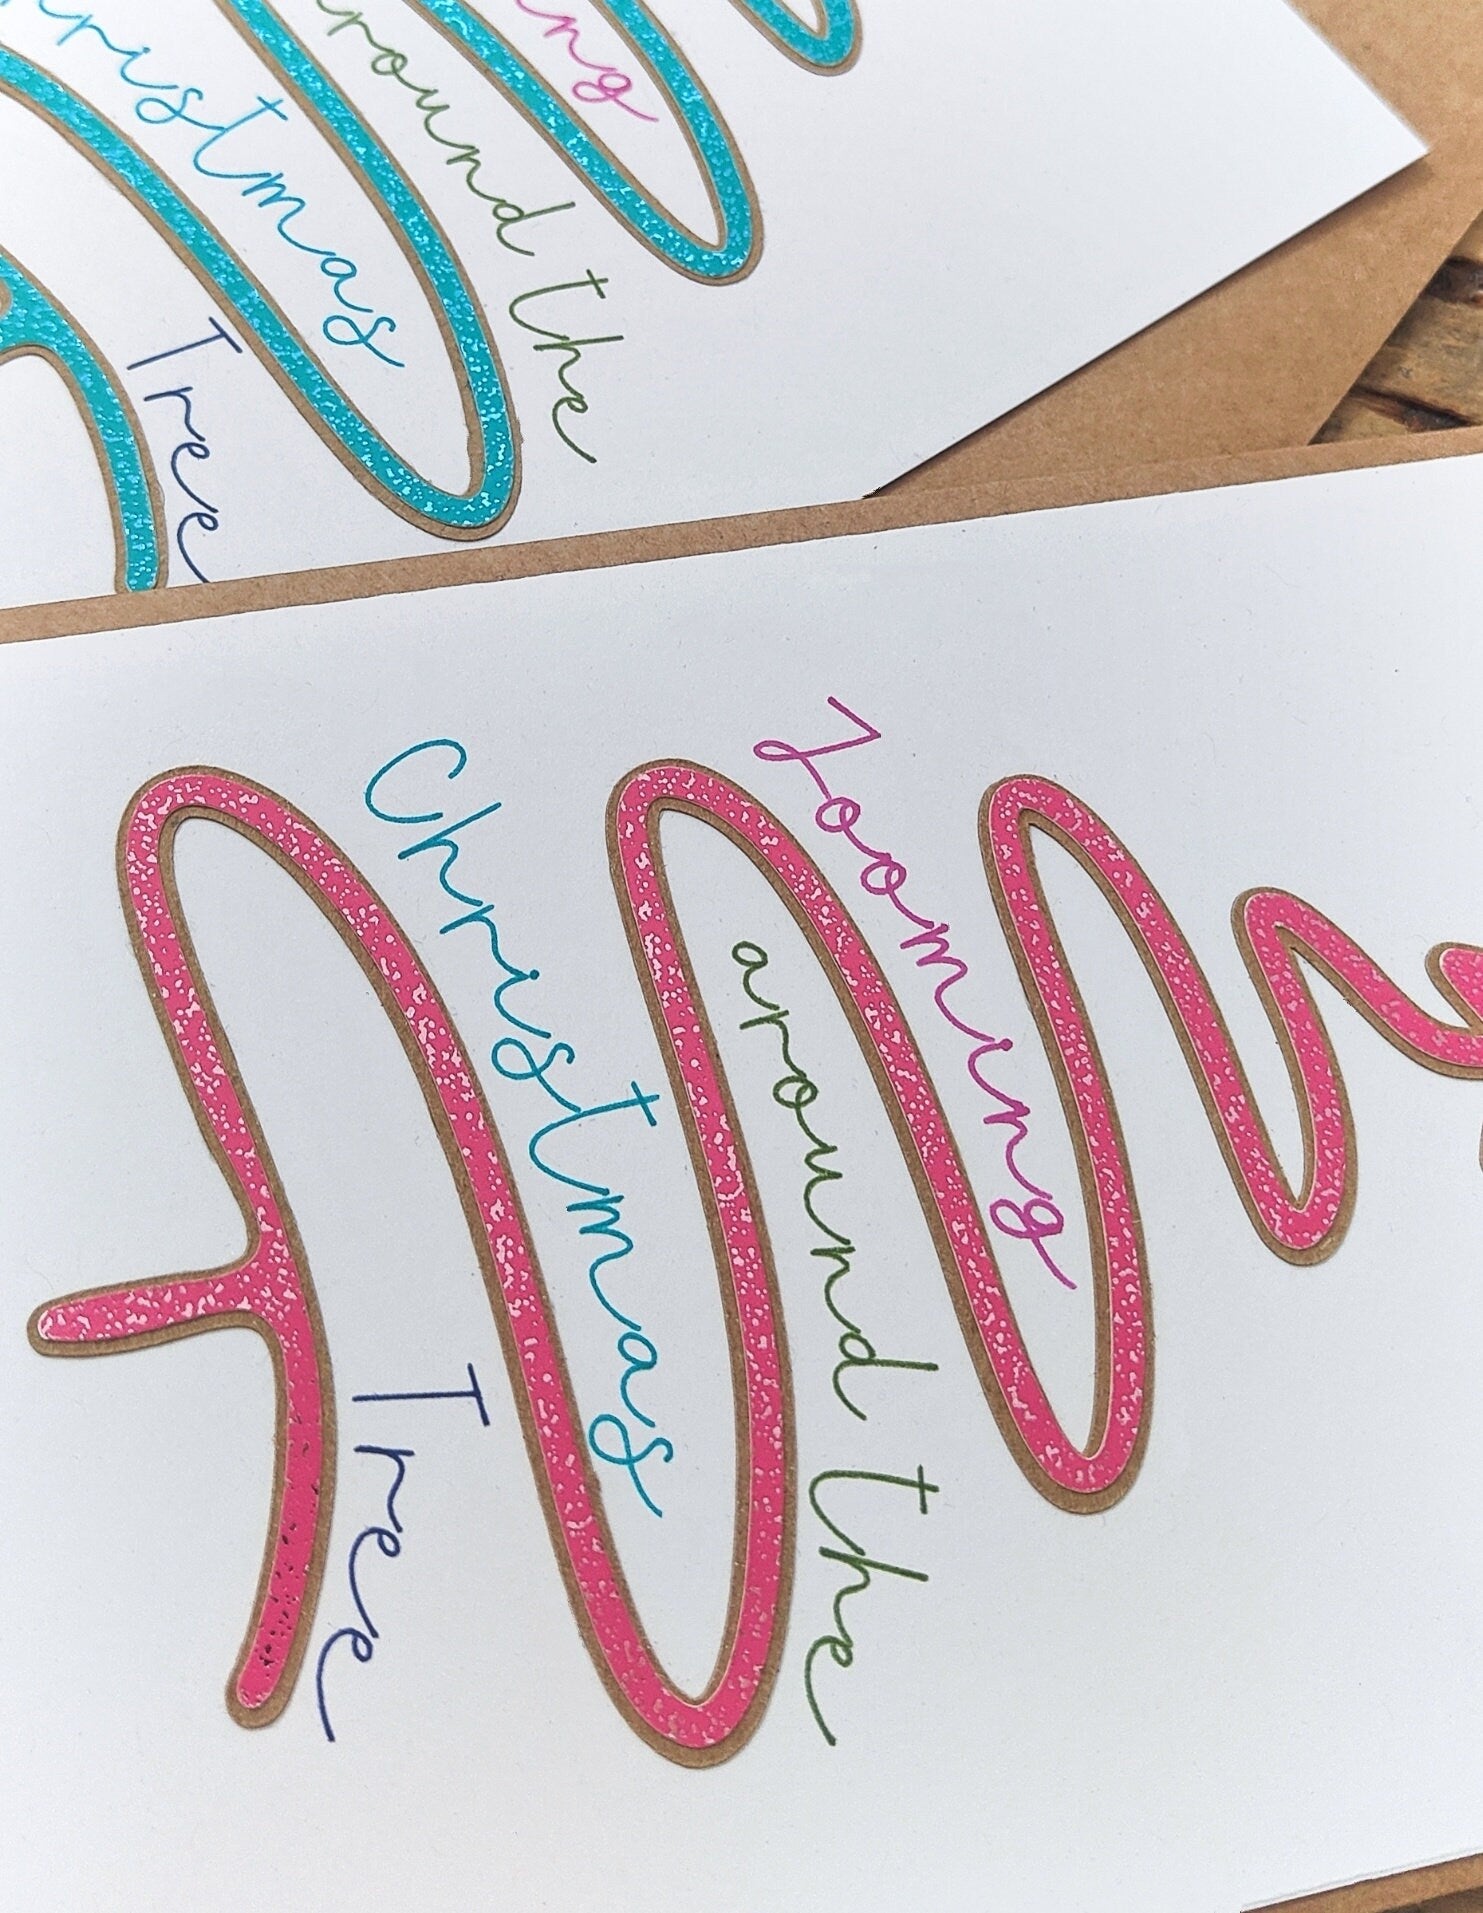 ng
round the
ristmas
Tree
Zooming
around the
Christmas
Tree